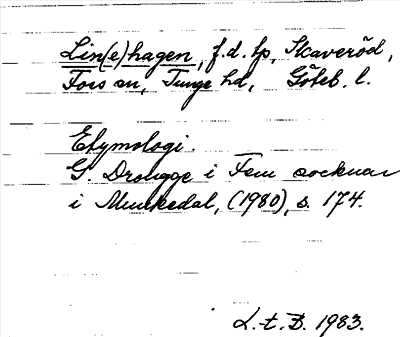 Lin(e)hagen, f.d. lp, Skaveröd,
Foss sn, Tunge hd, Göteb. l.
Etymologi.
G. Drougge i Fem socknar
i Munkedal, (1980), s. 174.
L.t.B. 1983.